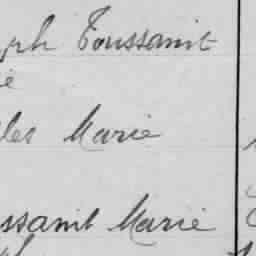 ph Toussaint
ie
les Marie
ssaint Marie